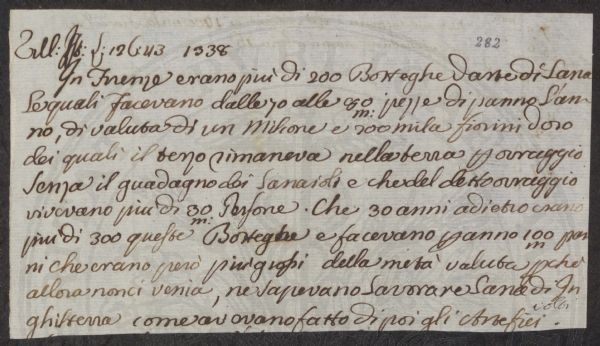 Zill: f: 126: 43 1338 282
In Firenze erano più di 200 Botteghe d'arte di Lana
le quali facevano dalle 70 alle 80 m: pezze di panno l'an-
no, di valuta di un Milione e 200 mila fiorini d'oro
dei quali il terzo rimaneva nella terra p ovraggio
senza il guadagno dei Lanaioli e che del detto ovraggio
vivevano più di 30 m Persone. Che 30 anni adietro erano
più di 300 queste Botteghe e facevano p anno 100 m pan
ni che erano però più grossi della metà valuta pchè
allora non ci venia, ne sapevano lavorare Lana d'In
ghilterra come avevano fatto di poi gli Artefici.